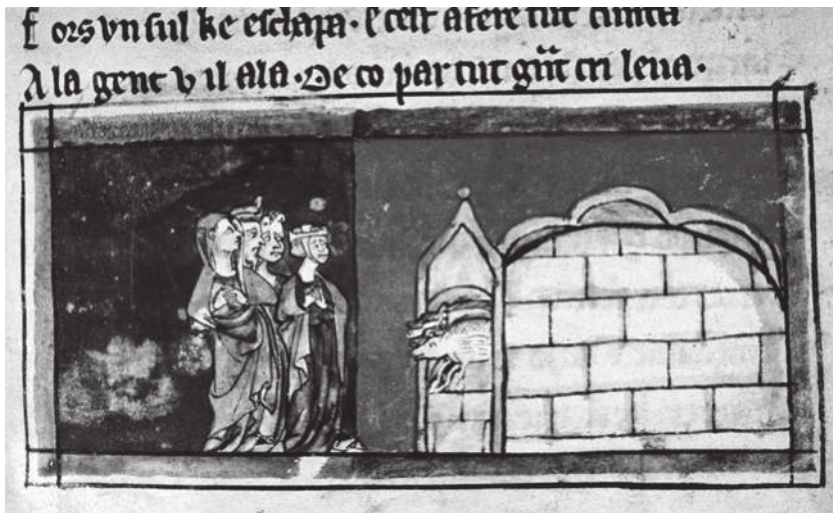 fors vn sul ke eschapa. E cest afere tut cunta
A la gent v il ala. De co par tut gnt cri leua.